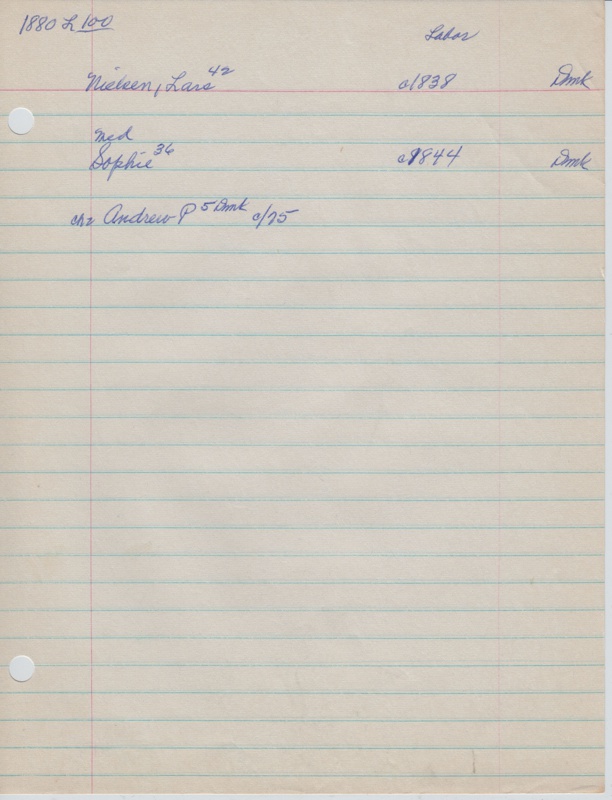 1880 L 100
Labor
Nielsen, Lars 42 c1838 Dmk
med
Sophie 36 c1844 Dmk
ch: Andrew P 5 Dmk c/75